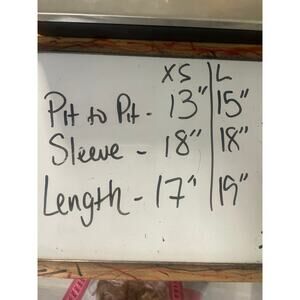 XS | L
Pit to Pit - 13" | 15"
Sleeve - 18" | 18"
Length - 17" | 19"